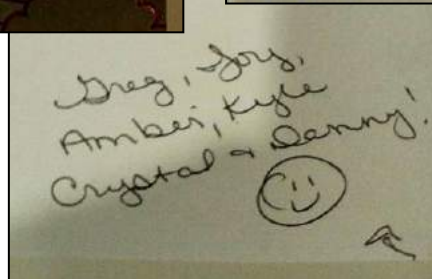 Greg, Lory,
Amber, Kyle
Crystal & Danny!